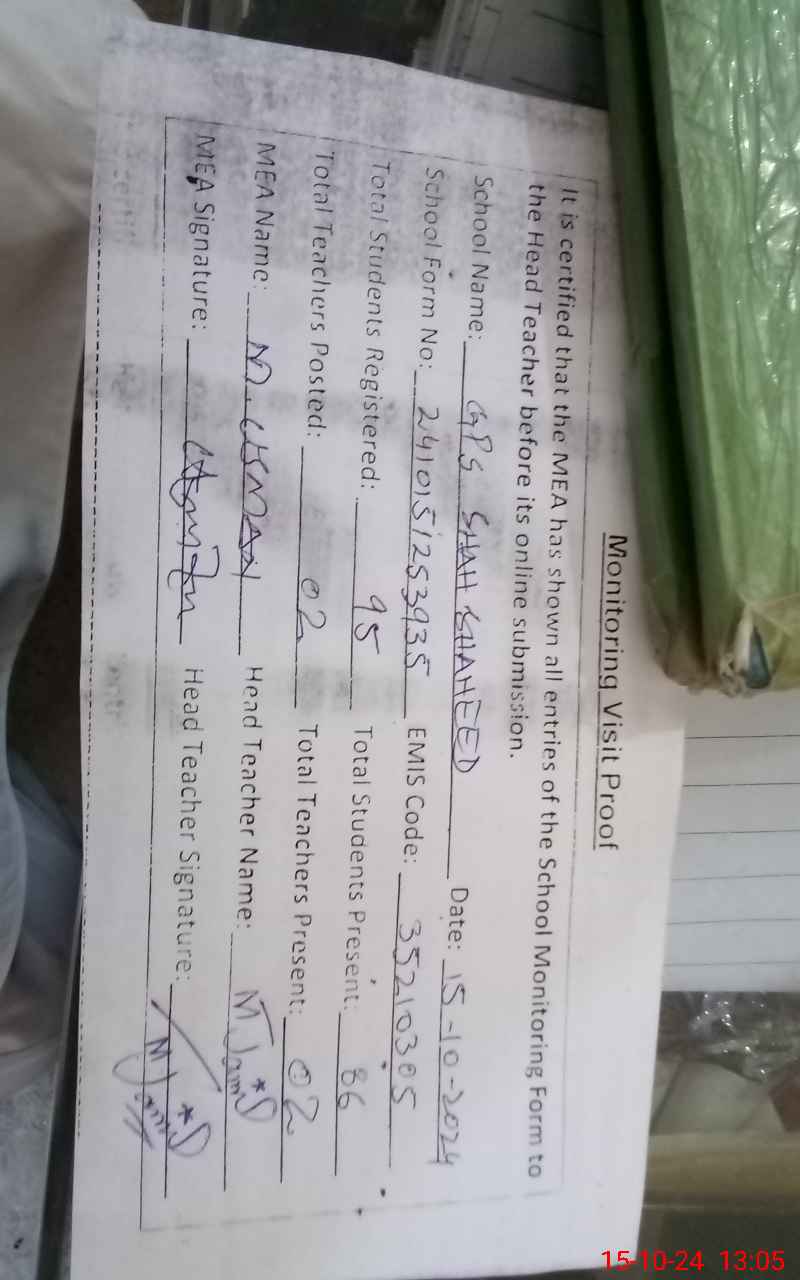 Monitoring Visit Proof
It is certified that the MEA has shown all entries of the School Monitoring Form to
the Head Teacher before its online submission.
School Name: GPS SHAH SHAHEED Date: 15-10-2024
School Form No: 2410151253935 EMIS Code: 35210305
Total Students Registered: 95 Total Students Present: 86
Total Teachers Posted: 02 Total Teachers Present: 02
MEA Name: M. USMAN Head Teacher Name: M. Jamil
MEA Signature: Usman Head Teacher Signature: M Jamil
15-10-24 13:05